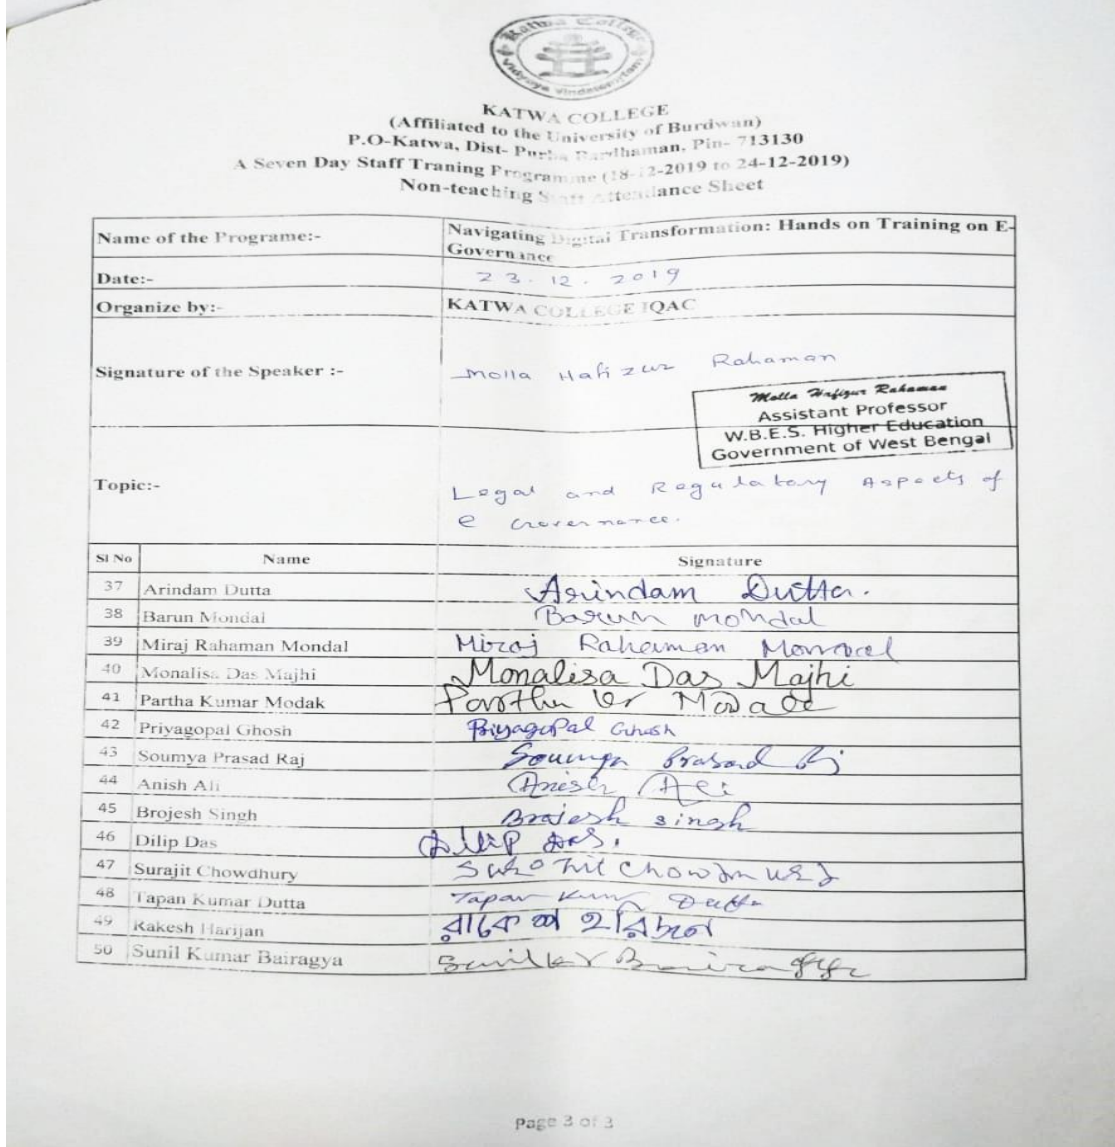 Katwa College
Vidyaya Vindateamritam
KATWA COLLEGE
(Affiliated to the University of Burdwan)
P.O-Katwa, Dist- Purba Bardhaman, Pin- 713130
A Seven Day Staff Traning Programme (18-12-2019 to 24-12-2019)
Non-teaching Staff Attendance Sheet
Name of the Programe:- Navigating Digital Transformation: Hands on Training on E-
Governance
Date:- 23.12.2019
Organize by:- KATWA COLLEGE IQAC
Signature of the Speaker :- Molla Hafizur Rahaman
Molla Hafizur Rahaman
Assistant Professor
W.B.E.S. Higher Education
Government of West Bengal
Topic:- Legal and Regulatory Aspects of
e Governance.
Sl No Name Signature
37 Arindam Dutta Arindam Dutta.
38 Barun Mondal Barun Mondal
39 Miraj Rahaman Mondal Miraj Rahaman Mondal
40 Monalisa Das Majhi Monalisa Das Majhi
41 Partha Kumar Modak Partha Kr Modak
42 Priyagopal Ghosh Priyagopal Ghosh
43 Soumya Prasad Raj Soumya Prasad Raj
44 Anish Ali Anish Ali
45 Brojesh Singh Brajesh Singh
46 Dilip Das Dilip Das.
47 Surajit Chowdhury Surojit Chowdhury
48 Tapan Kumar Dutta Tapan Kumar Dutta
49 Rakesh Harijan রাকেশ হরিজন
50 Sunil Kumar Bairagya Sunil Kr Bairagya
Page 3 of 3